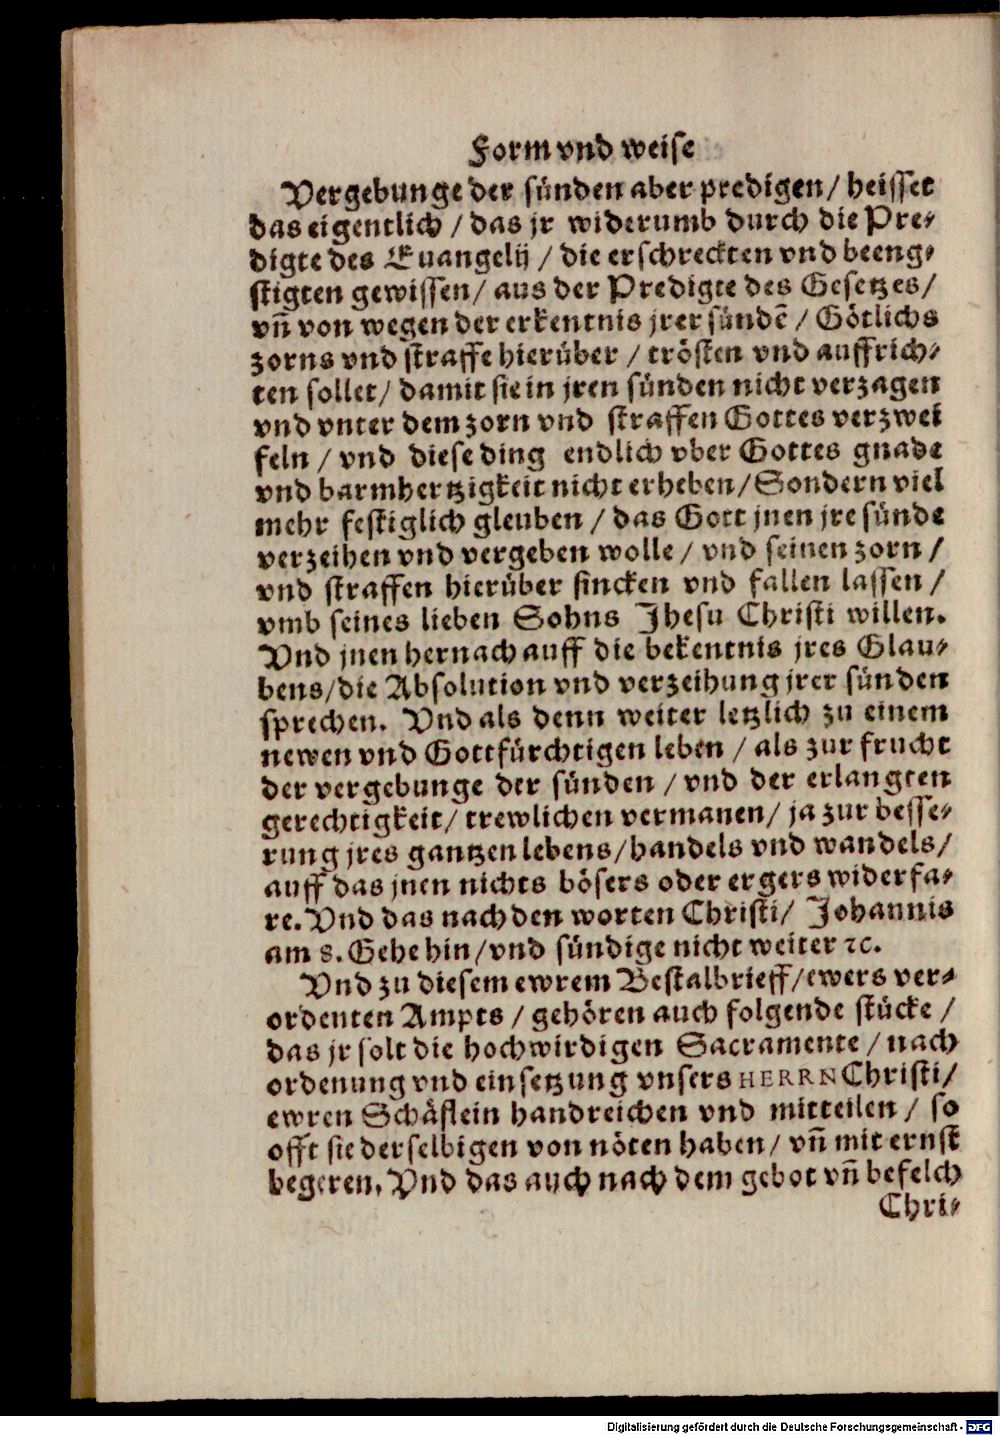 Form vnd weise
Vergebunge der sünden aber predigen / heisset
das eigentlich / das jr widerumb durch die Pre-
digte des Euangelij / die erschreckten vnd beeng-
stigten gewissen / aus der Predigte des Gesetzes /
vñ von wegen der erkentnis jrer sündẽ / Götlichs
zorns vnd straffe hierüber / trösten vnd auffrich-
ten sollet / damit sie in jren sünden nicht verzagen
vnd vnter dem zorn vnd straffen Gottes verzwei
feln / vnd diese ding endlich vber Gottes gnade
vnd barmhertzigkeit nicht erheben / Sondern viel
mehr festiglich gleuben / das Gott jnen jre sünde
verzeihen vnd vergeben wolle / vnd seinen zorn /
vnd straffen hierüber sincken vnd fallen lassen /
vmb seines lieben Sohns Jhesu Christi willen.
Vnd jnen hernach auff die bekentnis jres Glau-
bens / die Absolution vnd verzeihung jrer sünden
sprechen. Vnd als denn weiter letzlich zu einem
newen vnd Gottfürchtigen leben / als zur frucht
der vergebunge der sünden / vnd der erlangten
gerechtigkeit / trewlichen vermanen / ja zur besse-
rung jres gantzen lebens / handels vnd wandels /
auff das jnen nichts bösers oder ergers widerfa-
re. Vnd das nach den worten Christi / Johannis
am 8. Gehe hin / vnd sündige nicht weiter ꝛc.
Vnd zu diesem ewrem Bestalbrieff / ewers ver-
ordenten Ampts / gehören auch folgende stücke /
das jr solt die hochwirdigen Sacramente / nach
ordenung vnd einsetzung vnsers HERRN Christi /
ewren Schäflein handreichen vnd mitteilen / so
offt sie derselbigen von nöten haben / vñ mit ernst
begeren. Vnd das auch nach dem gebot vñ befelch
Chri-
Digitalisierung gefördert durch die Deutsche Forschungsgemeinschaft - DFG